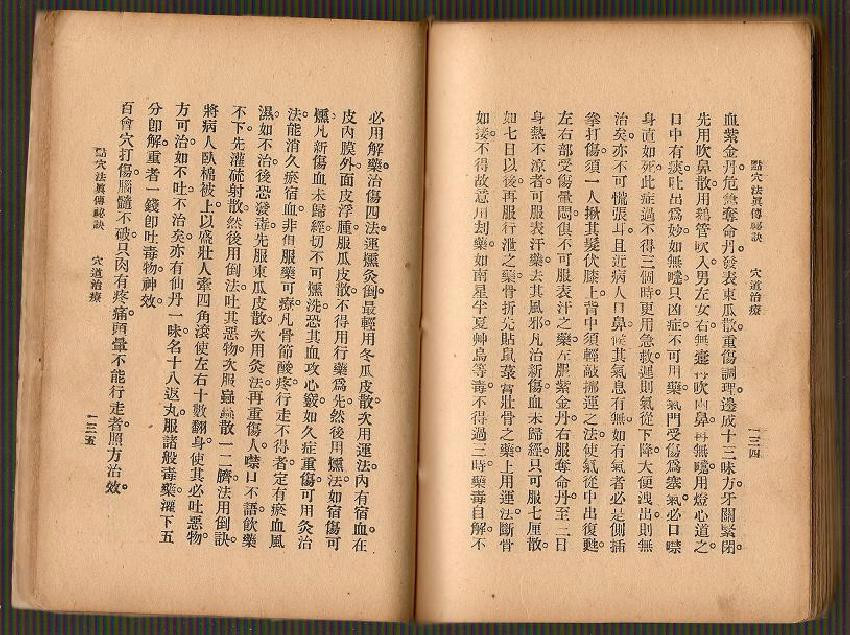 點穴法眞傳祕訣　穴道治療　一三四
血紫金丹危急奪命丹發表東瓜散重傷調理邊成十三味方牙關緊閉。
先用吹鼻散用鵝管吹入男左女右無嚏再吹兩鼻再無嚏用燈心道之
口中有痰吐出爲妙如無嚏只凶症不可用藥氣門受傷爲塞氣必口噤
身直如死此症過不得三個時更用急救遲則氣從下降大便洩出則無
治矣亦不可慌張耳且近病人口鼻候其氣息有無如有氣者必是側插
拳打傷須一人揪其髮伏膝上背中須輕敲挪運之法使氣從中出復甦。
左右部受傷暈悶俱不可服表汗之藥左服紫金丹右服奪命丹至二日
身熱不涼者可服表汗藥去其風邪凡治新傷血未歸經只可服七厘散
如七日以後再服行泄之藥骨折先貼鼠蔴膏壯骨之藥上用運法斷骨
如接不得故意用刦藥如南星半夏艸烏等毒不得過三時藥毒自解不
必用解藥治傷四法運燻灸倒最輕用冬瓜皮散次用運法內有宿血在
皮內膜外面皮浮腫服瓜皮散不得用行藥爲先然後用燻法如宿傷可
燻凡新傷血未歸經切不可燻洗恐其血攻心竅如久症重傷可用灸治
法能消久瘀宿血非但服藥可療凡骨節酸疼行走不得者定有瘀血風
濕如不治後恐發毒先服東瓜皮散次用灸法再重傷人噤口不語飲藥
不下先灌硫射散然後用倒法吐其惡物次服蟲蝨散一二臍法用倒訣。
將病人臥棉被上以盛壯人牽四角滾使左右十數翻身使其必吐惡物
方可治如不吐不治矣亦有仙丹一味名十八返丸服諸般毒藥灌下五
分卽解重者一錢卽吐毒物神效。
百會穴打傷腦髓不破只肉有疼痛頭暈不能行走者照方治效。
點穴法眞傳祕訣　穴道治療　一三五